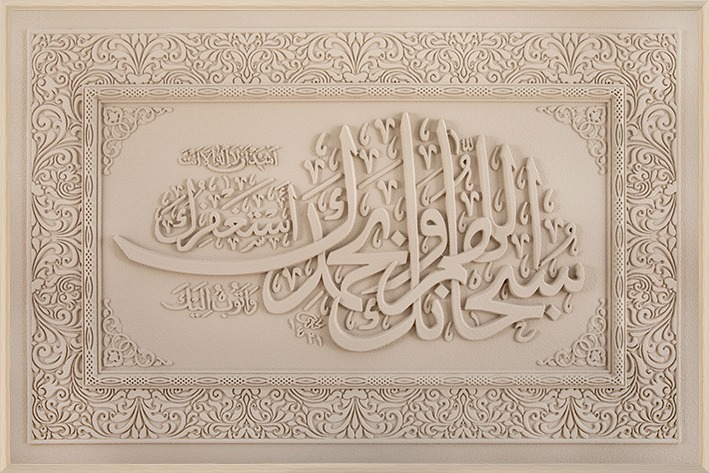 سبحانك اللهم وبحمدك
أشهد أن لا إله إلا أنت
أستغفرك
وأتوب إليك